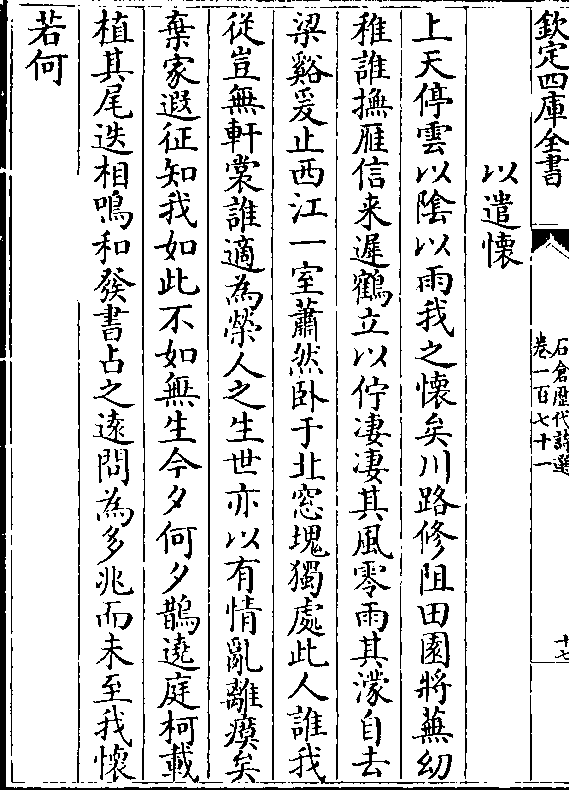 欽定四庫全書
石倉歴代詩選
卷一百七十一
十七
以遣懷
上天停雲以陰以雨我之懷矣川路修阻田園將蕪幼
稚誰撫雁信来遲鶴立以佇凄凄其風零雨其濛自去
梁谿爰止西江一室蕭然卧于北窓塊獨處此人誰我
從豈無軒裳誰適為榮人之生世亦以有情亂離瘼矣
棄家遐征知我如此不如無生今夕何夕鵲遶庭柯載
植其尾迭相鳴和發書占之逺問為多兆而未至我懷
若何